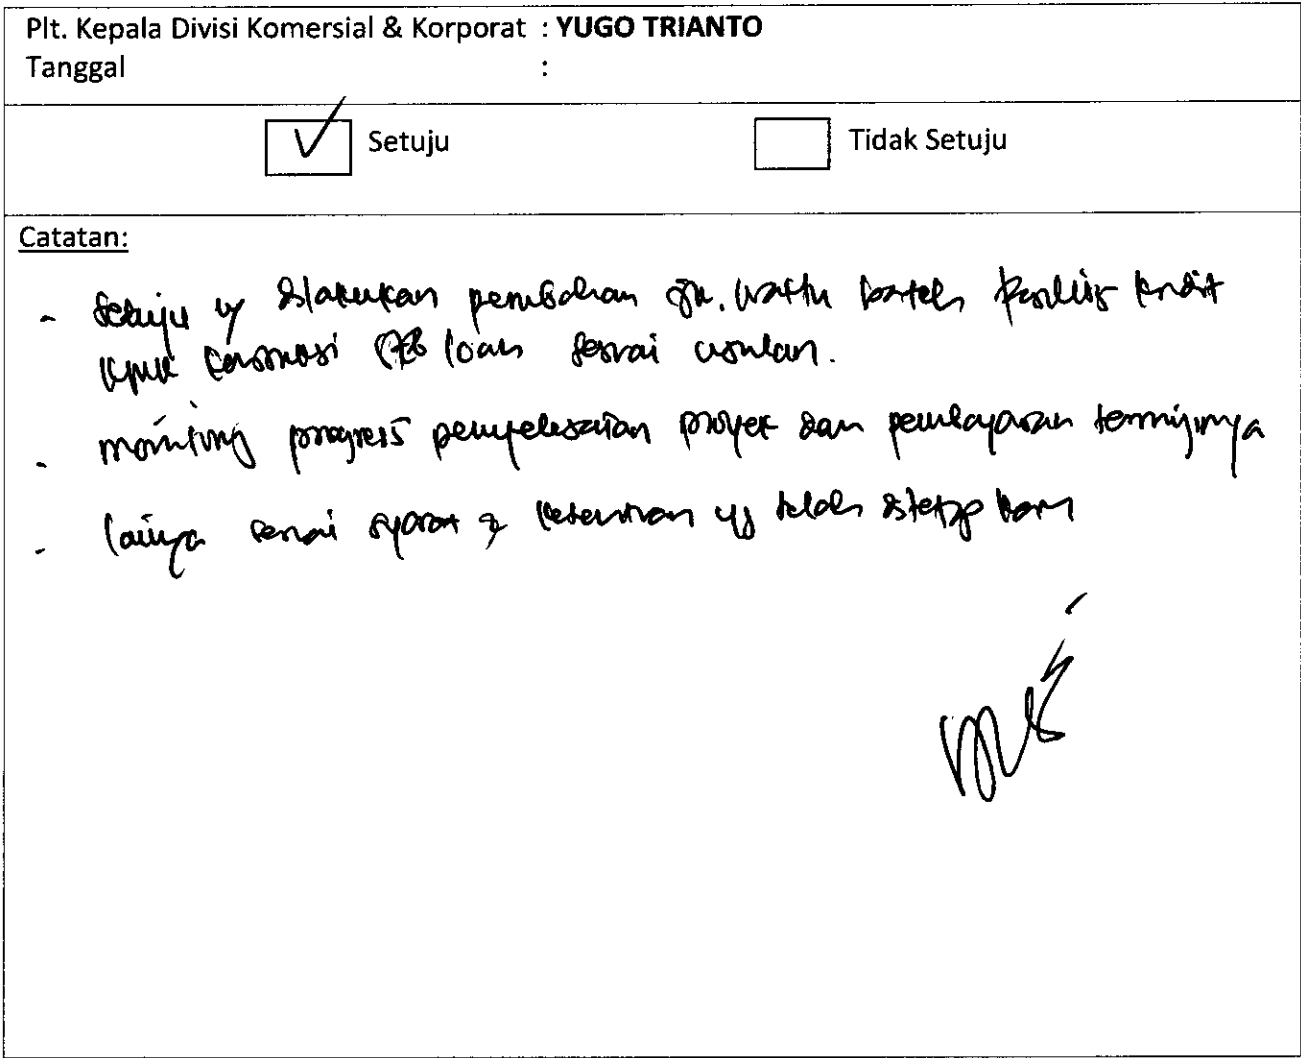 Plt. Kepala Divisi Komersial & Korporat : YUGO TRIANTO
Tanggal :
Setuju Tidak Setuju
Catatan:
- Setuju dilakukan perubahan jk. waktu fasilitas kredit
loan sesuai usulan.
- monitoring progress penyelesaian proyek dan pembayaran terminnya
- lainnya sesuai syarat & ketentuan yg telah ditetapkan